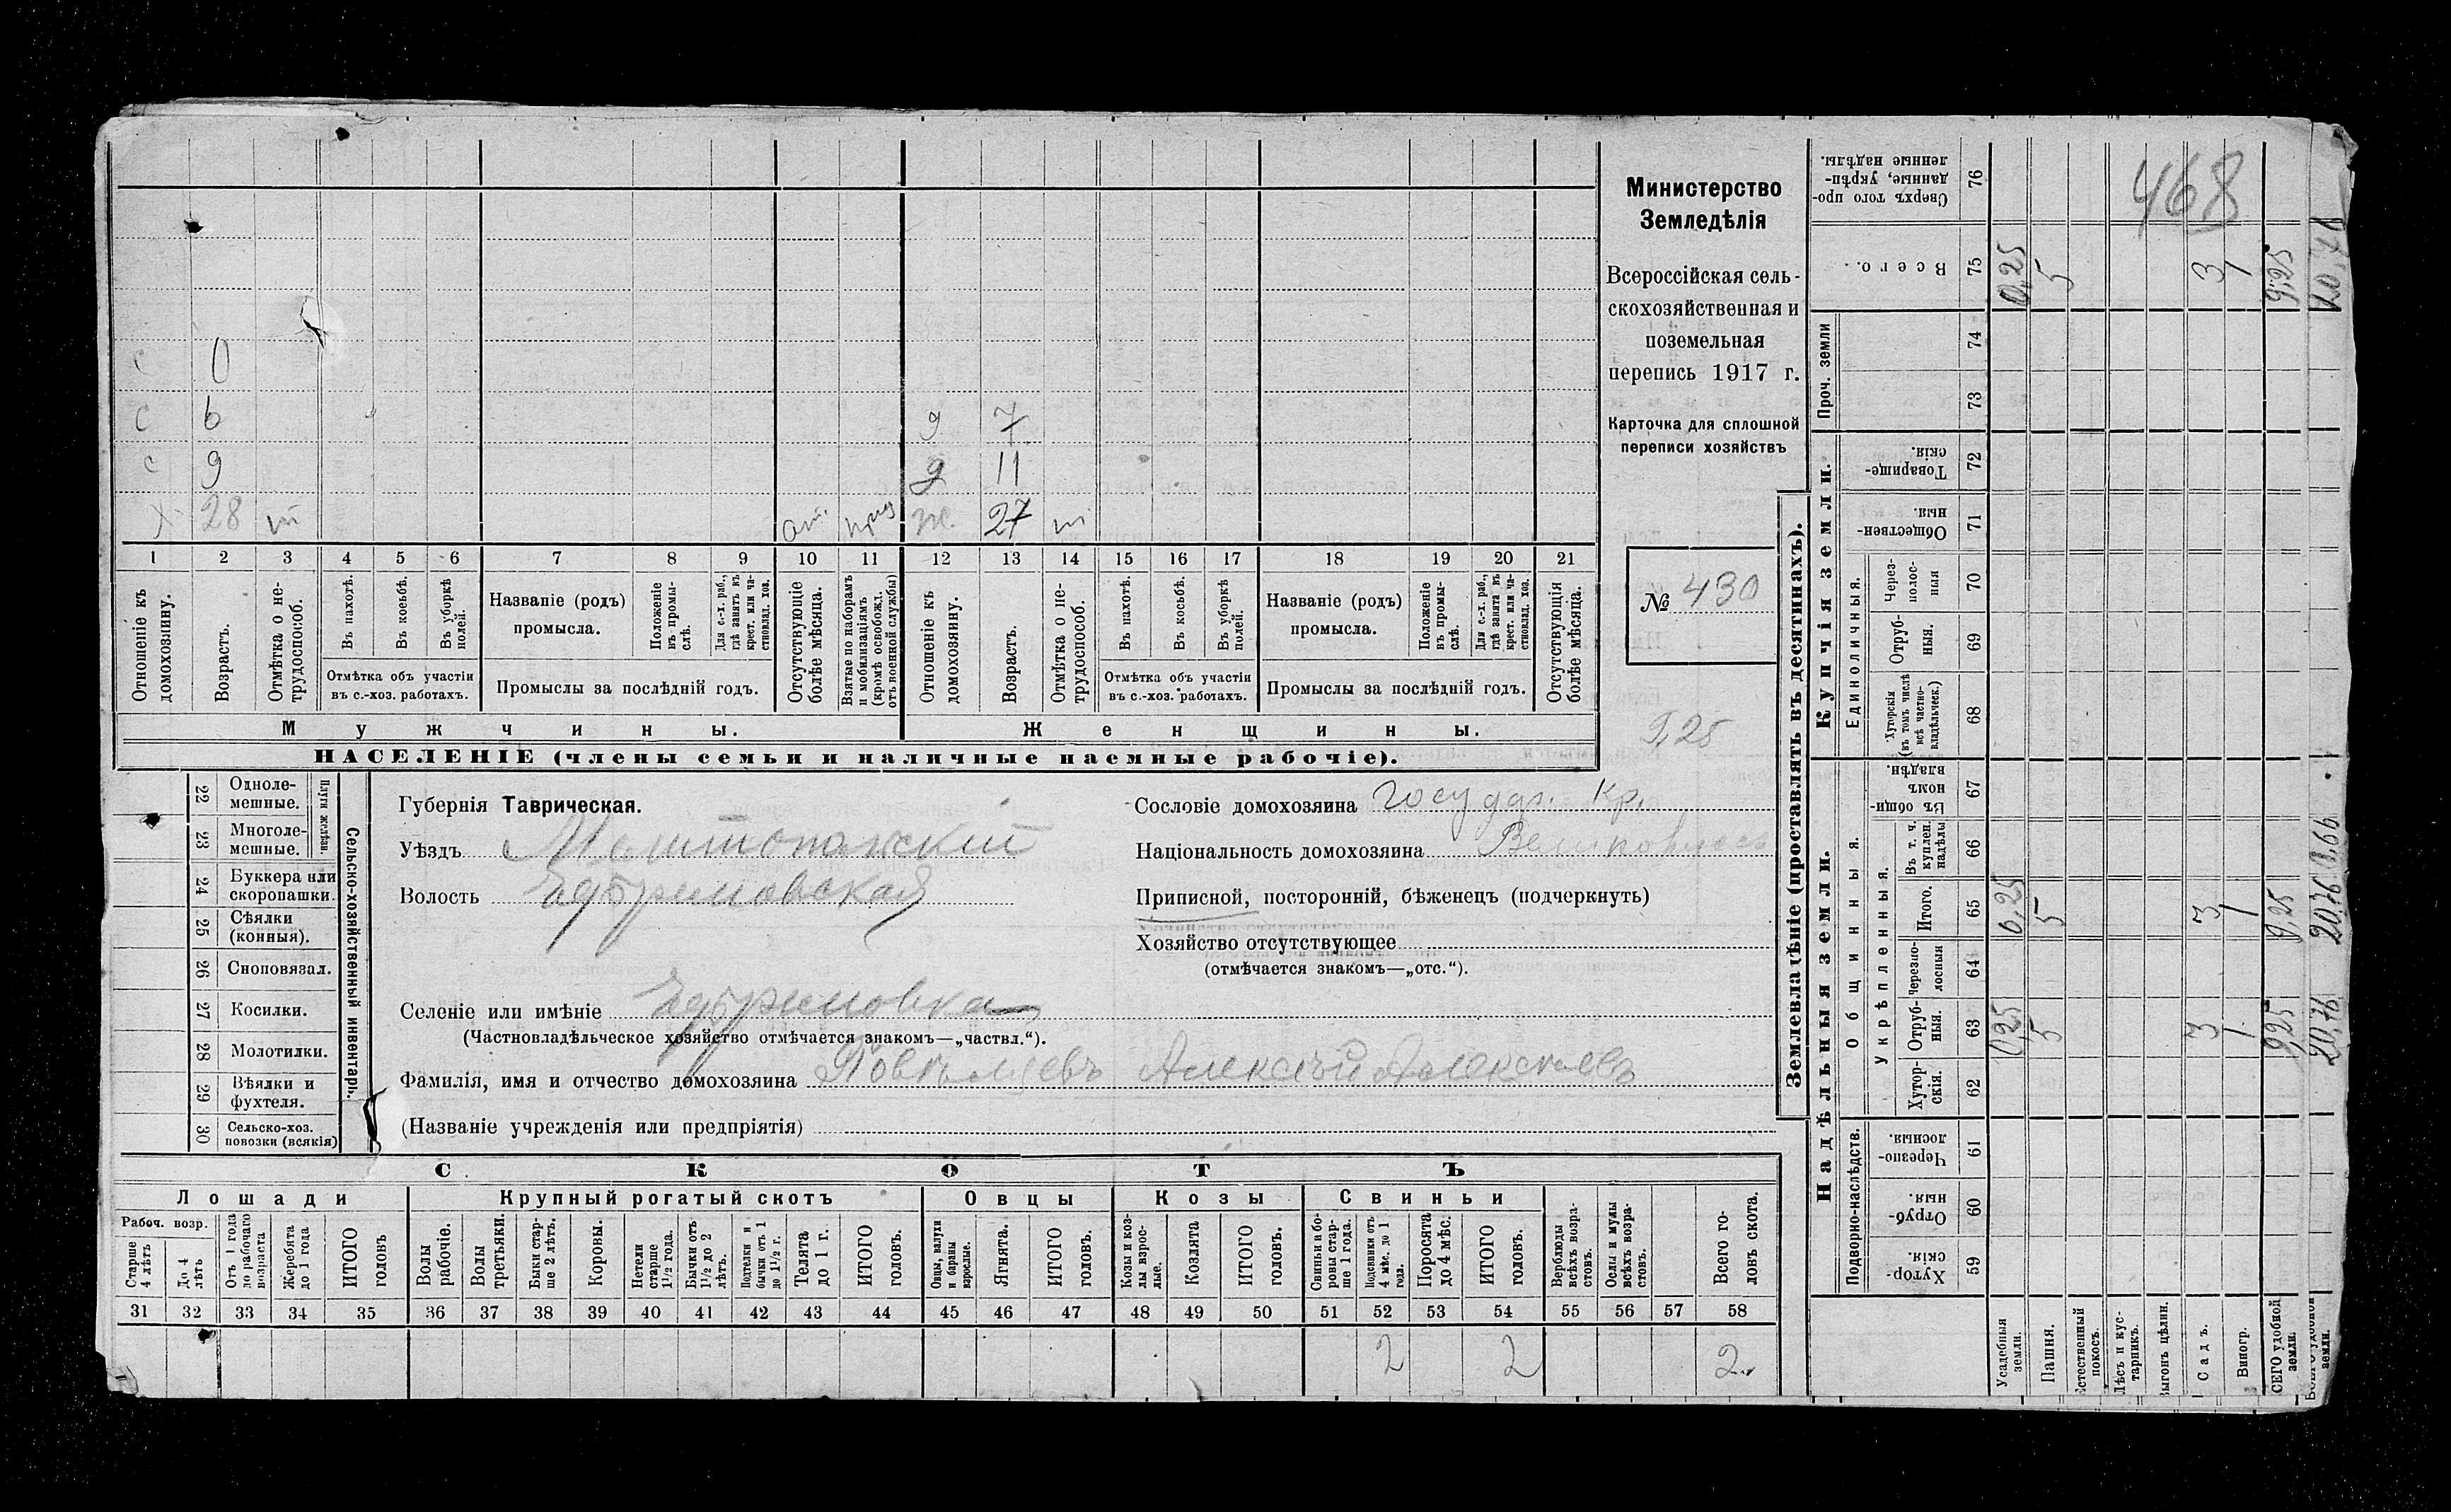 468
Министерство
Земледѣлія
Всероссійская сель-
скохозяйственная и
поземельная
перепись 1917 г.
Карточка для сплошной
переписи хозяйствъ
№ 430
9,25
с 0
с 6 д 7
с 9 д 11
х 28 от. ж. 27
1 2 3 4 5 6 7 8 9 10 11 12 13 14 15 16 17 18 19 20 21
Отношеніе къ домохозяину.
Возрастъ.
Отмѣтка о не-трудоспособ.
Въ пахотѣ.
Въ косьбѣ.
Въ уборкѣ полей.
Отмѣтка объ участіи
въ с.-хоз. работахъ.
Названіе (родъ)
промысла.
Положеніе въ промы-слѣ.
Для с.-х. раб., гдѣ занятъ въ крест. или ча-стновлад. хоз.
Промыслы за послѣдній годъ.
Отсутствующіе болѣе мѣсяца.
Взятые по наборамъ и мобилизаціямъ (кромѣ освобожд. отъ военной службы)
Отношеніе къ домохозяину.
Возрастъ.
Отмѣтка о не-трудоспособ.
Въ пахотѣ.
Въ косьбѣ.
Въ уборкѣ полей.
Отмѣтка объ участіи
въ с.-хоз. работахъ.
Названіе (родъ)
промысла.
Положеніе въ промы-слѣ.
Для с.-х. раб., гдѣ занята въ крест. или ча-стновлад. хоз.
Промыслы за послѣдній годъ.
Отсутствующія болѣе мѣсяца.
Мужчины. Женщины.
НАСЕЛЕНІЕ (члены семьи и наличные наемные рабочіе).
22 Одноле-
мешные.
23 Многоле-
мешные.
Плуги желѣзн.
24 Буккера или
скоропашки.
25 Сѣялки
(конныя).
26 Сноповязал.
27 Косилки.
28 Молотилки.
29 Вѣялки и
фухтеля.
30 Сельско-хоз.
повозки (всякія)
Сельско-хозяйственный инвентарь.
Губернія Таврическая.
Уѣздъ Мелитопольский
Волость Ефремовская
Селеніе или имѣніе Ефремовка
(Частновладѣльческое хозяйство отмѣчается знакомъ—„частвл.“).
Фамилія, имя и отчество домохозяина Алексѣй Алексѣевъ
(Названіе учрежденія или предпріятія)
Сословіе домохозяина государ. кр.
Національность домохозяина Великоруссъ
Приписной, посторонній, бѣженецъ (подчеркнуть)
Хозяйство отсутствующее
(отмѣчается знакомъ—„отс.“).
СКОТЪ
Лошади Крупный рогатый скотъ Овцы Козы Свиньи
Рабоч. возр.
Старше 4 лѣтъ
До 4 лѣтъ
Отъ 1 года до рабочаго возраста
Жеребята до 1 года
ИТОГО головъ
Волы рабочіе.
Волы третьяки.
Быки стар-ше 2 лѣтъ.
Коровы.
Нетели старше 1½ года.
Бычки отъ 1½ до 2 лѣтъ.
Подтелки и бычки отъ 1 до 1½ г.
Телята до 1 г.
ИТОГО головъ.
Овцы, валухи и бараны взрослые.
Ягнята.
ИТОГО головъ.
Козы и коз-лы взрос-лые.
Козлята
ИТОГО головъ.
Свиньи и бо-ровы стар-ше 1 года.
Подсвинки отъ 4 мѣс. до 1 года.
Поросята до 4 мѣс.
ИТОГО головъ.
Верблюды всѣхъ возра-стовъ.
Ослы и мулы всѣхъ возра-стовъ.
Всего го-ловъ скота.
31 32 33 34 35 36 37 38 39 40 41 42 43 44 45 46 47 48 49 50 51 52 53 54 55 56 57 58
2 2 2
Землевладѣніе (проставлять въ десятинахъ).
Надѣльныя земли. Купчія земли. Проч. земли
Подворно-наслѣдств.
Общинныя.
Укрѣпленныя.
Единоличныя.
59 Хутор-скія.
60 Отруб-ныя.
61 Черезпо-лосныя.
62 Хутор-скія.
63 Отруб-ныя. 0,25 5 3 1 9,25 20,76
64 Черезпо-лосныя
65 Итого. 0,25 5 3 1 9,25 20,76
66 Въ т. ч. куплен. надѣлы
67 Въ общи-номъ владѣн.
68 Хуторскія (въ томъ числѣ всѣ частно-владѣльческ.)
69 Отруб-ныя.
70 Через-полос-ныя
71 Обществен-ныя.
72 Товарище-скія.
73
74
75 Всего. 0,25 5 3 1 9,25
76 Сверхъ того про-данные, укрѣп-ленные надѣлы.
Усадебныя земли.
Пашня.
Естественный покосъ.
Лѣсъ и кус-тарникъ.
Выгонъ цѣлин.
Садъ.
Виногр.
ВСЕГО удобной земли.